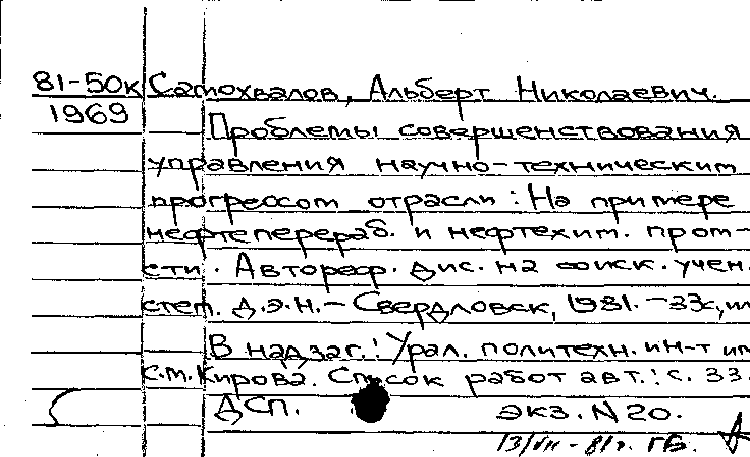 81-50к Самохвалов, Альберт Николаевич.
1969 Проблемы совершенствования
управления научно-техническим
прогрессом отрасли: На примере
нефтеперераб. и нефтехим. пром-
сти. Автореф. дис. на соиск. учен.
степ. д.э.н. - Свердловск, 1981. - 33с., ил
В надзаг.: Урал. политехн. ин-т им
С.М. Кирова. Список работ авт.: с. 33.
ДСП. экз. N 20.
13/VII - 81г. ГБ.